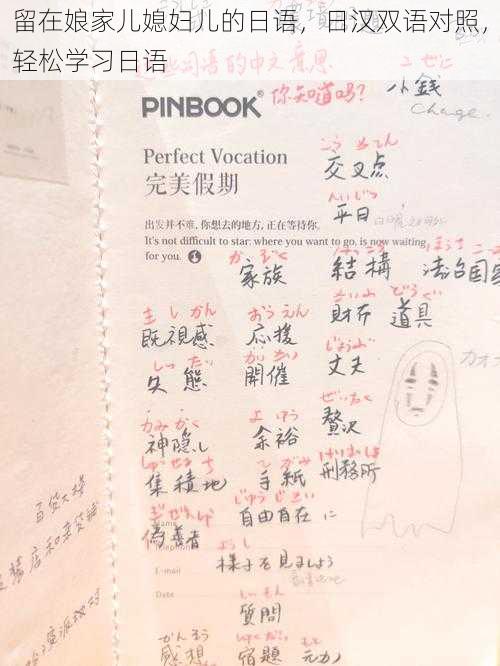 留在娘家儿媳妇儿的日语，日汉双语对照，
轻松学习日语
这些词语的中文意思
你知道吗？
こぜに
小銭
Change.
PINBOOK®
こう さてん
交叉点
Perfect Vocation
完美假期
へいじつ
平日
出发并不难, 你想去的地方, 正在等待你.
It's not difficult to star: where you want to go, is now waiting
for you.
かぞく
家族
けっこう
結構
法治国家
きしかん
既視感
おうえん
応援
さいふ
財布
どうぐ
道具
しったい
失態
かいさい
開催
じょうぶ
丈夫
カオナ
かみかくし
神隠し
よゆう
余裕
ぜいたく
贅沢
しゅうせきち
集積地
てがみ
手紙
けいむしょ
刑務所
ぎぜんしゃ
偽善者
じゆうじざい
自由自在に
Name
Telephone
E-mail
ようし
様子を見ましょう
Date
しつもん
質問
かんそう
感想
しゅくだい
宿題
元カ
百货大楼
店和卖货铺